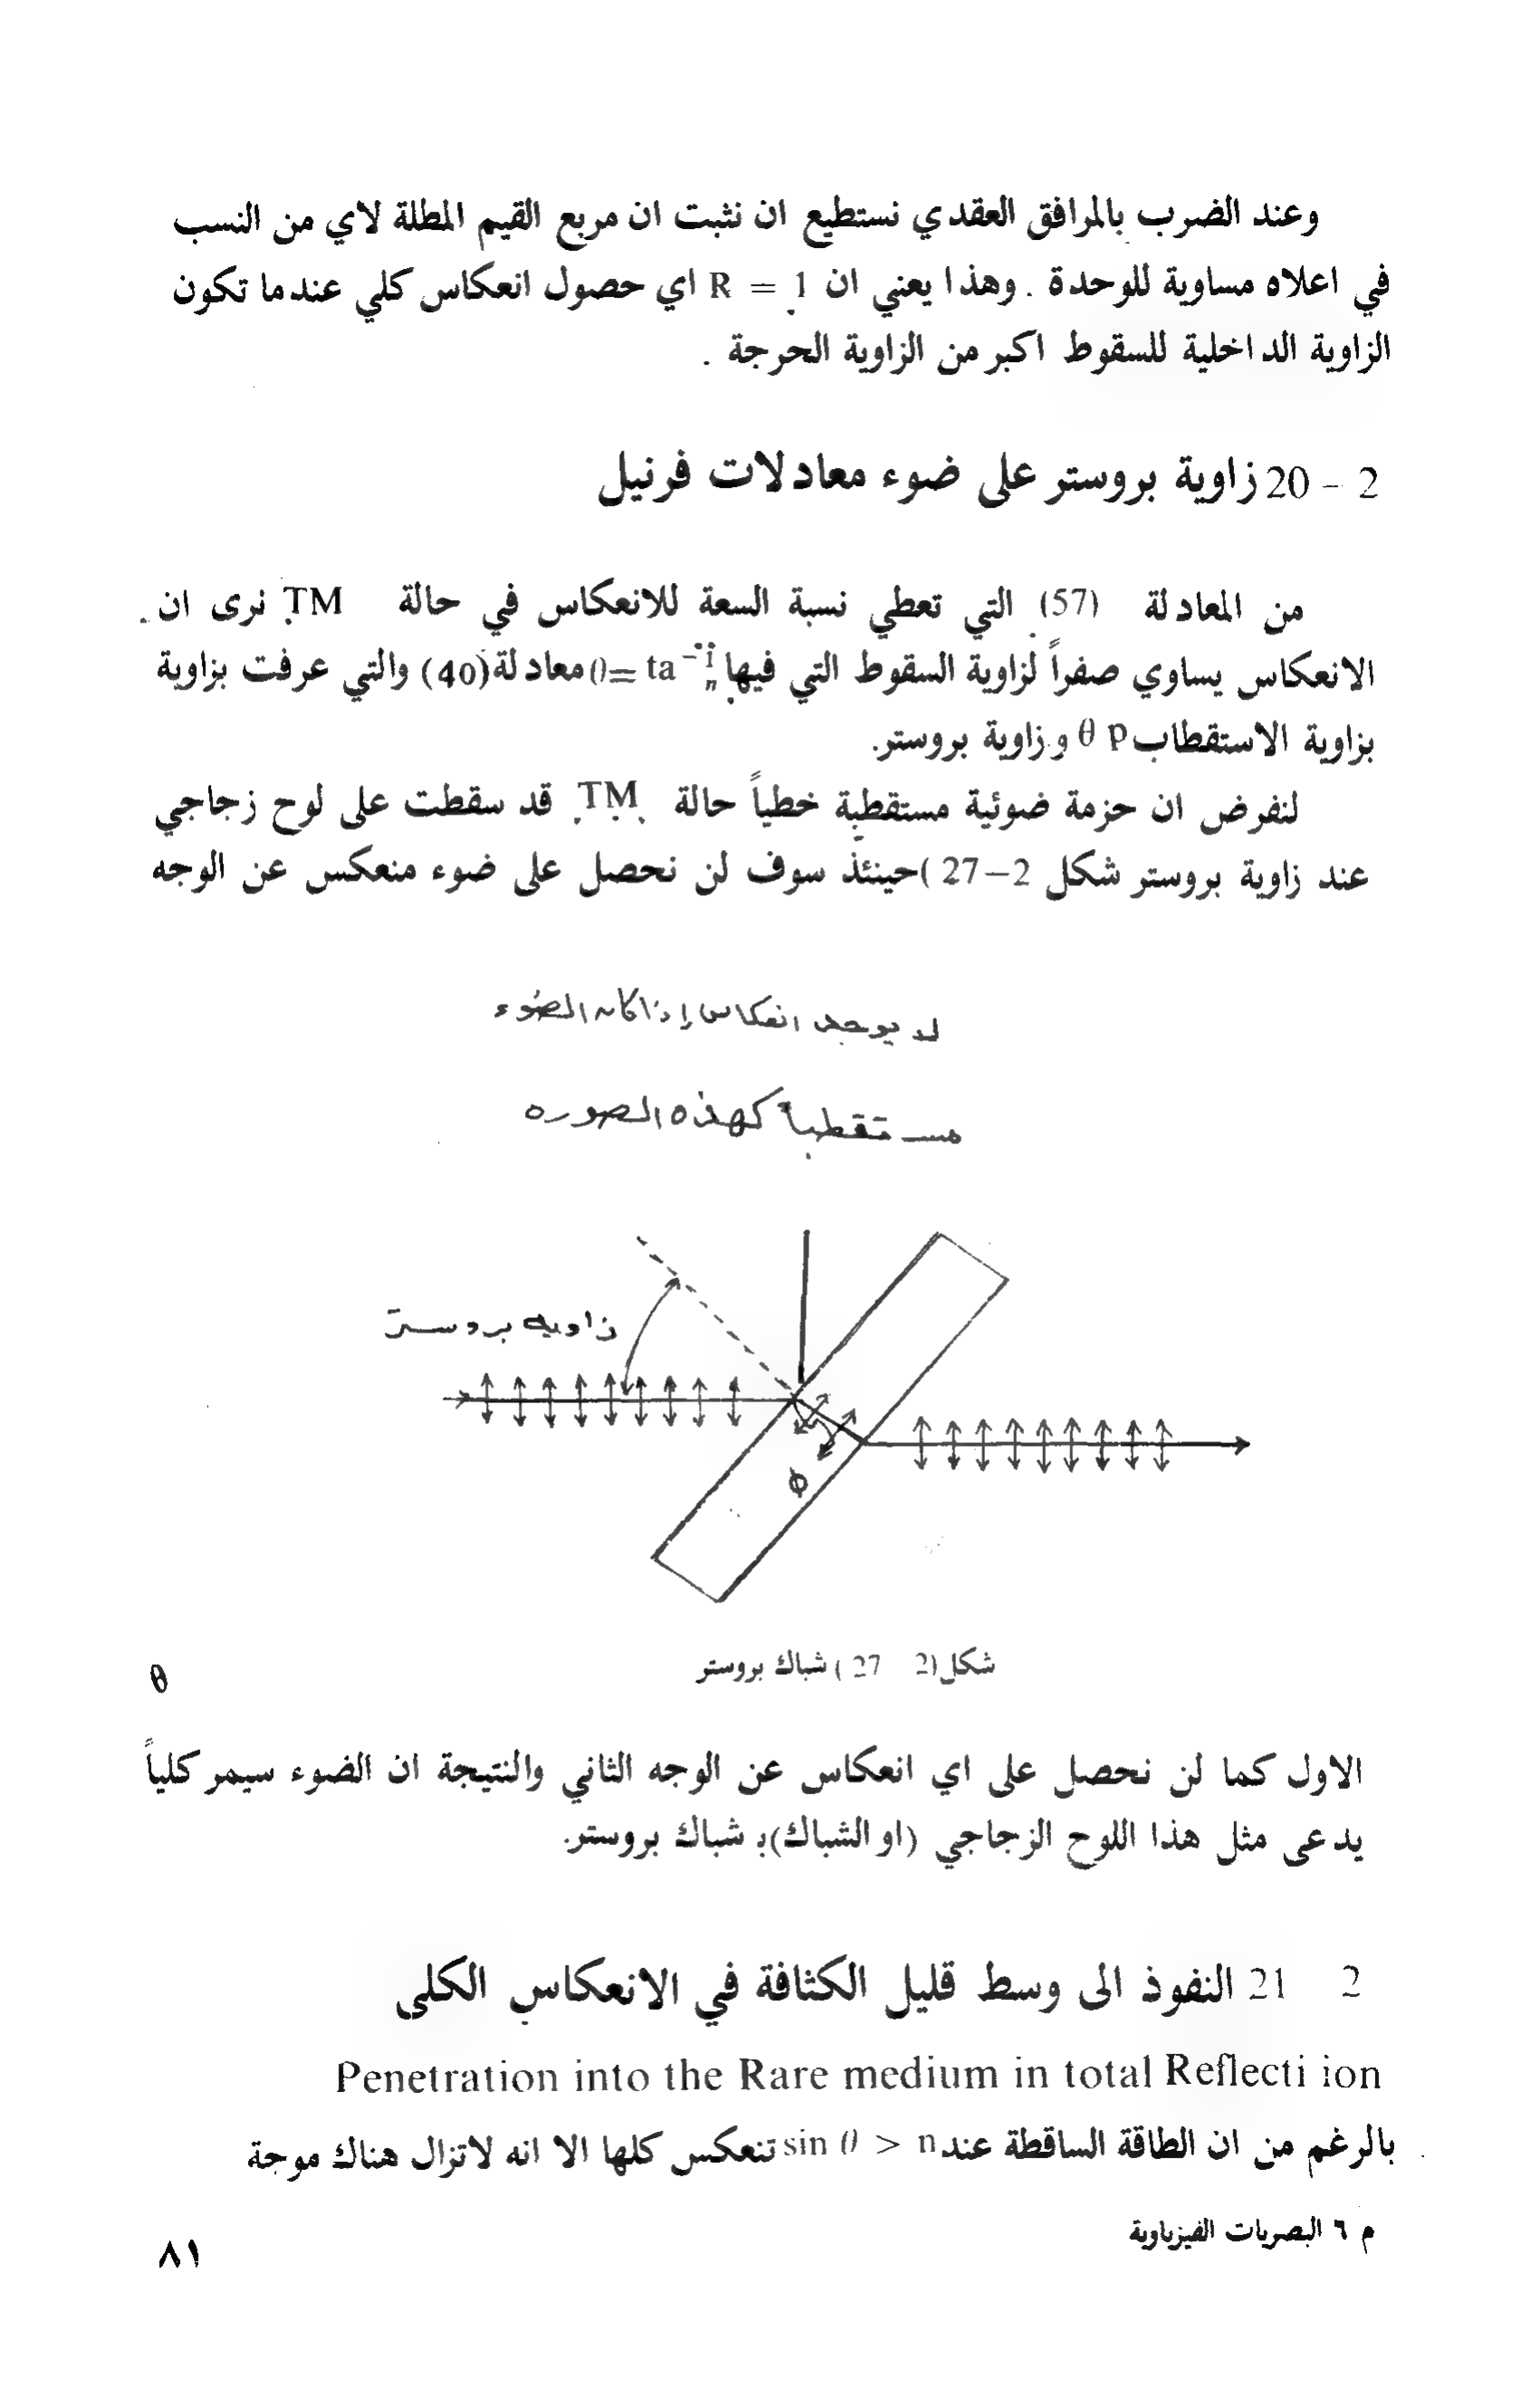 وعند الضرب بالمرافق العقدي نستطيع ان نثبت ان مربع القيم المطلة لاي من النسب
في اعلاه مساوية للوحدة . وهذا يعني ان R = 1 اي حصول انعكاس كلي عندما تكون
الزاوية الداخلية للسقوط اكبر من الزاوية الحرجة .
2 - 20 زاوية بروستر على ضوء معادلات فرنيل
من المعادلة (57) التي تعطي نسبة السعة للانعكاس في حالة TM نرى ان
الانعكاس يساوي صفراً لزاوية السقوط التي فيها θ= ta⁻¹n معادلة (40) والتي عرفت بزاوية
بزاوية الاستقطاب θ p و زاوية بروستر.
لنفرض ان حزمة ضوئية مستقطبة خطياً حالة TM قد سقطت على لوح زجاجي
عند زاوية بروستر شكل 2–27 )حينئذ سوف لن نحصل على ضوء منعكس عن الوجه
لا يوجد انعكاس إذا كان الضوء
مستقطباً كهذه الصوره
زاويه بروستر
ϕ
شكل(2 27 ) شباك بروستر
θ
الاول كما لن نحصل على اي انعكاس عن الوجه الثاني والنتيجة ان الضوء سيمر كلياً
يدعى مثل هذا اللوح الزجاجي (او الشباك)بـ شباك بروستر.
2 21 النفوذ الى وسط قليل الكثافة في الانعكاس الكلي
Penetration into the Rare medium in total Reflecti ion
بالرغم من ان الطاقة الساقطة عند sin θ > n تنعكس كلها الا انه لاتزال هناك موجة
م ٦ البصريات الفيزياوية
٨١